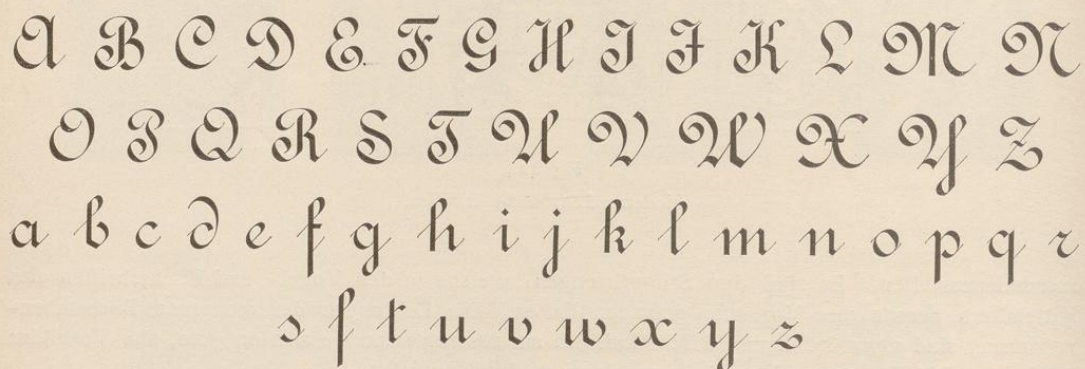 A B C D E F G H I J K L M N
O P Q R S T U V W X Y Z
a b c d e f g h i j k l m n o p q r
s ſ t u v w x y z